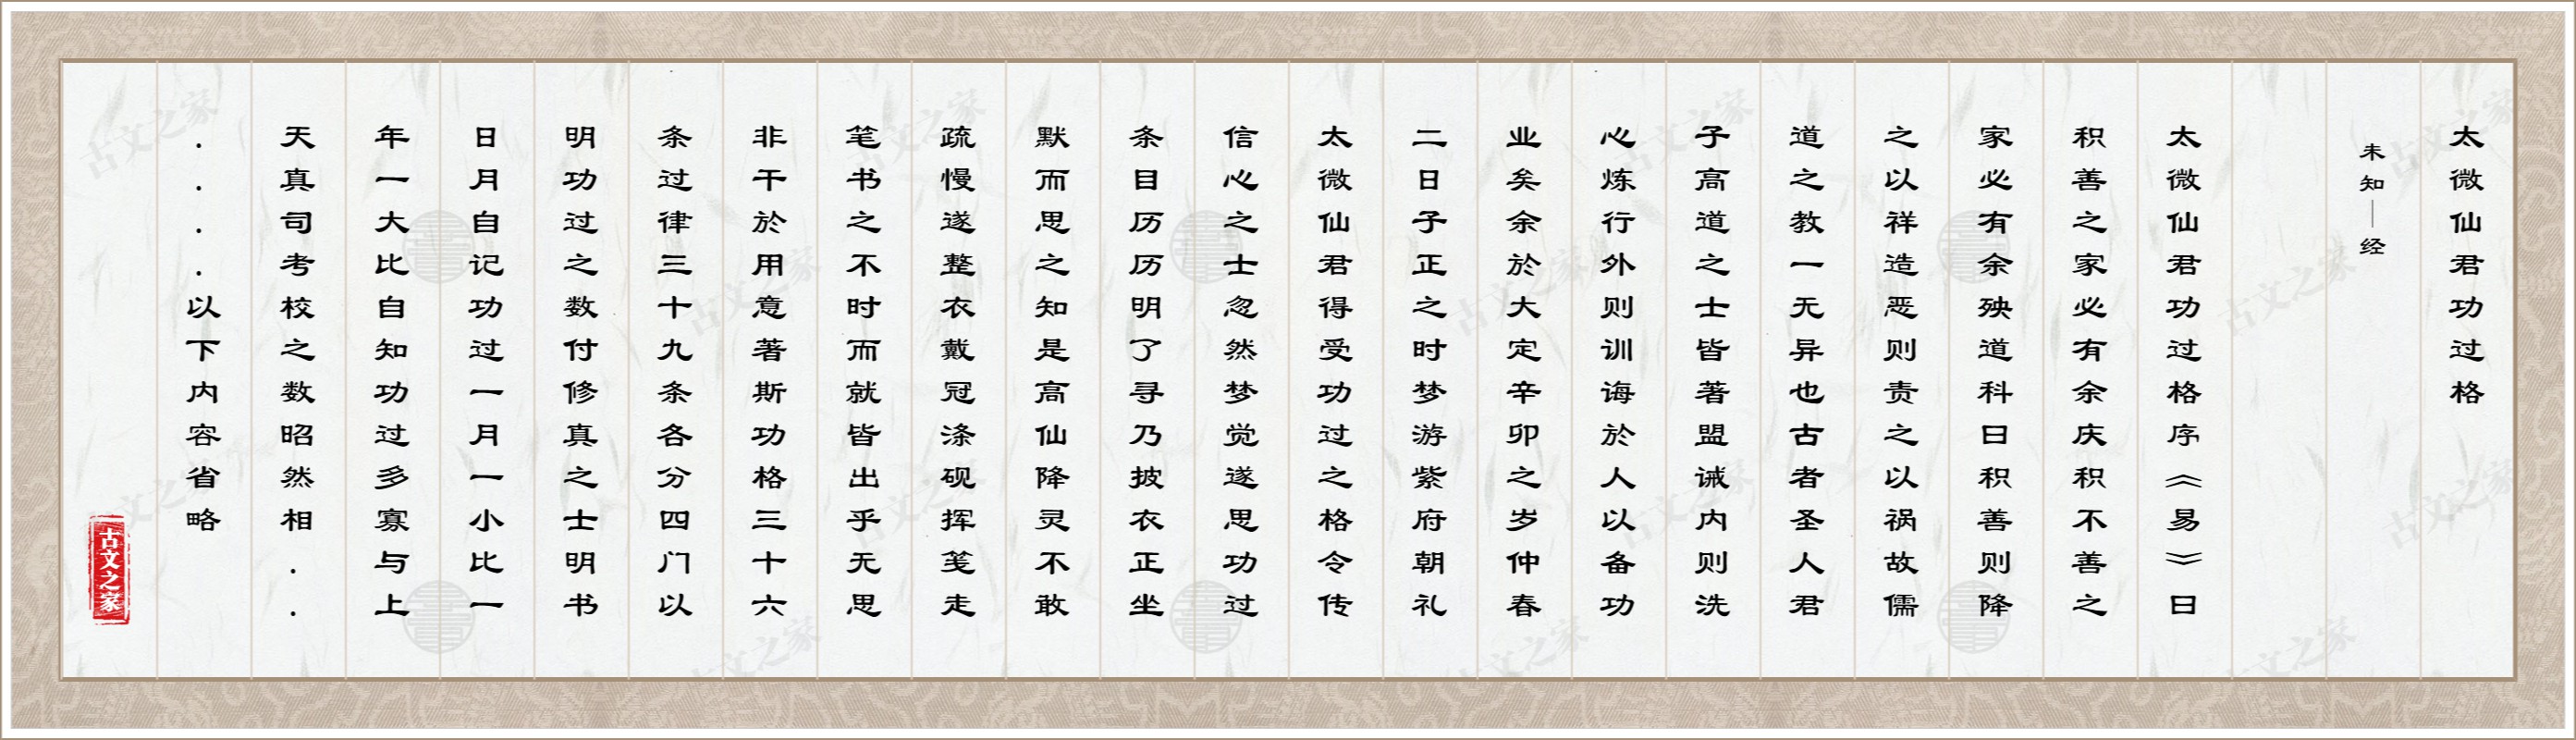 太微仙君功过格
未知｜经
太微仙君功过格序︽易︾曰
积善之家必有余庆积不善之
家必有余殃道科曰积善则降
之以祥造恶则责之以祸故儒
道之教一无异也古者圣人君
子高道之士皆著盟诫内则洗
心炼行外则训诲於人以备功
业矣余於大定辛卯之岁仲春
二日子正之时梦游紫府朝礼
太微仙君得受功过之格令传
信心之士忽然梦觉遂思功过
条目历历明了寻乃披衣正坐
默而思之知是高仙降灵不敢
疏慢遂整衣戴冠涤砚挥笺走
笔书之不时而就皆出乎无思
非干於用意著斯功格三十六
条过律三十九条各分四门以
明功过之数付修真之士明书
日月自记功过一月一小比一
年一大比自知功过多寡与上
天真司考校之数昭然相..
....以下内容省略
古文之家